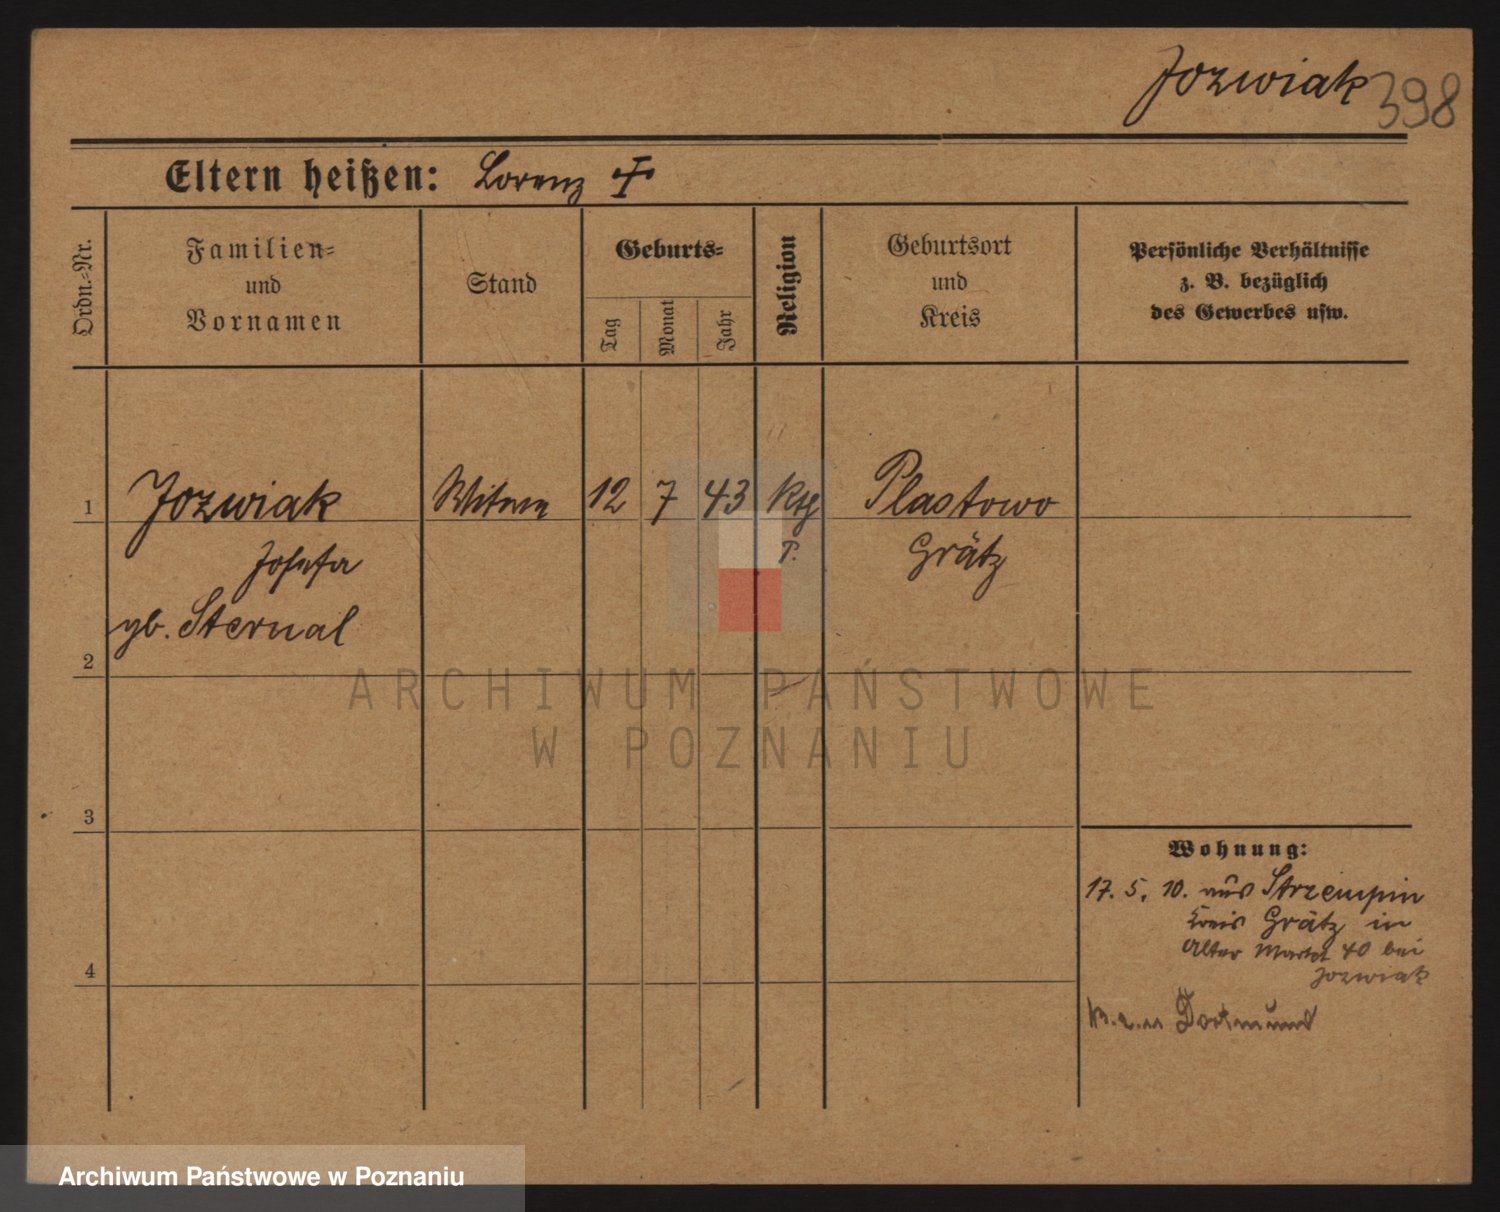 Jozwiak 398
Eltern heißen: Lorenz †
Ordn.-Nr.
Familien-
und
Vornamen
Stand
Geburts-
Tag
Monat
Jahr
Religion
Geburtsort
und
Kreis
Persönliche Verhältnisse
z. B. bezüglich
des Gewerbes usw.
1 Jozwiak Witwe 12 7 43 Kth Plastowo
P. Grätz
Josefa
gb. Sternal
2
ARCHIWUM PAŃSTWOWE
W POZNANIU
3
Wohnung:
17. 5. 10. aus Strzempin
Kreis Grätz in
Alter Markt 40 bei
Jozwiak
4
Dortmund
Archiwum Państwowe w Poznaniu